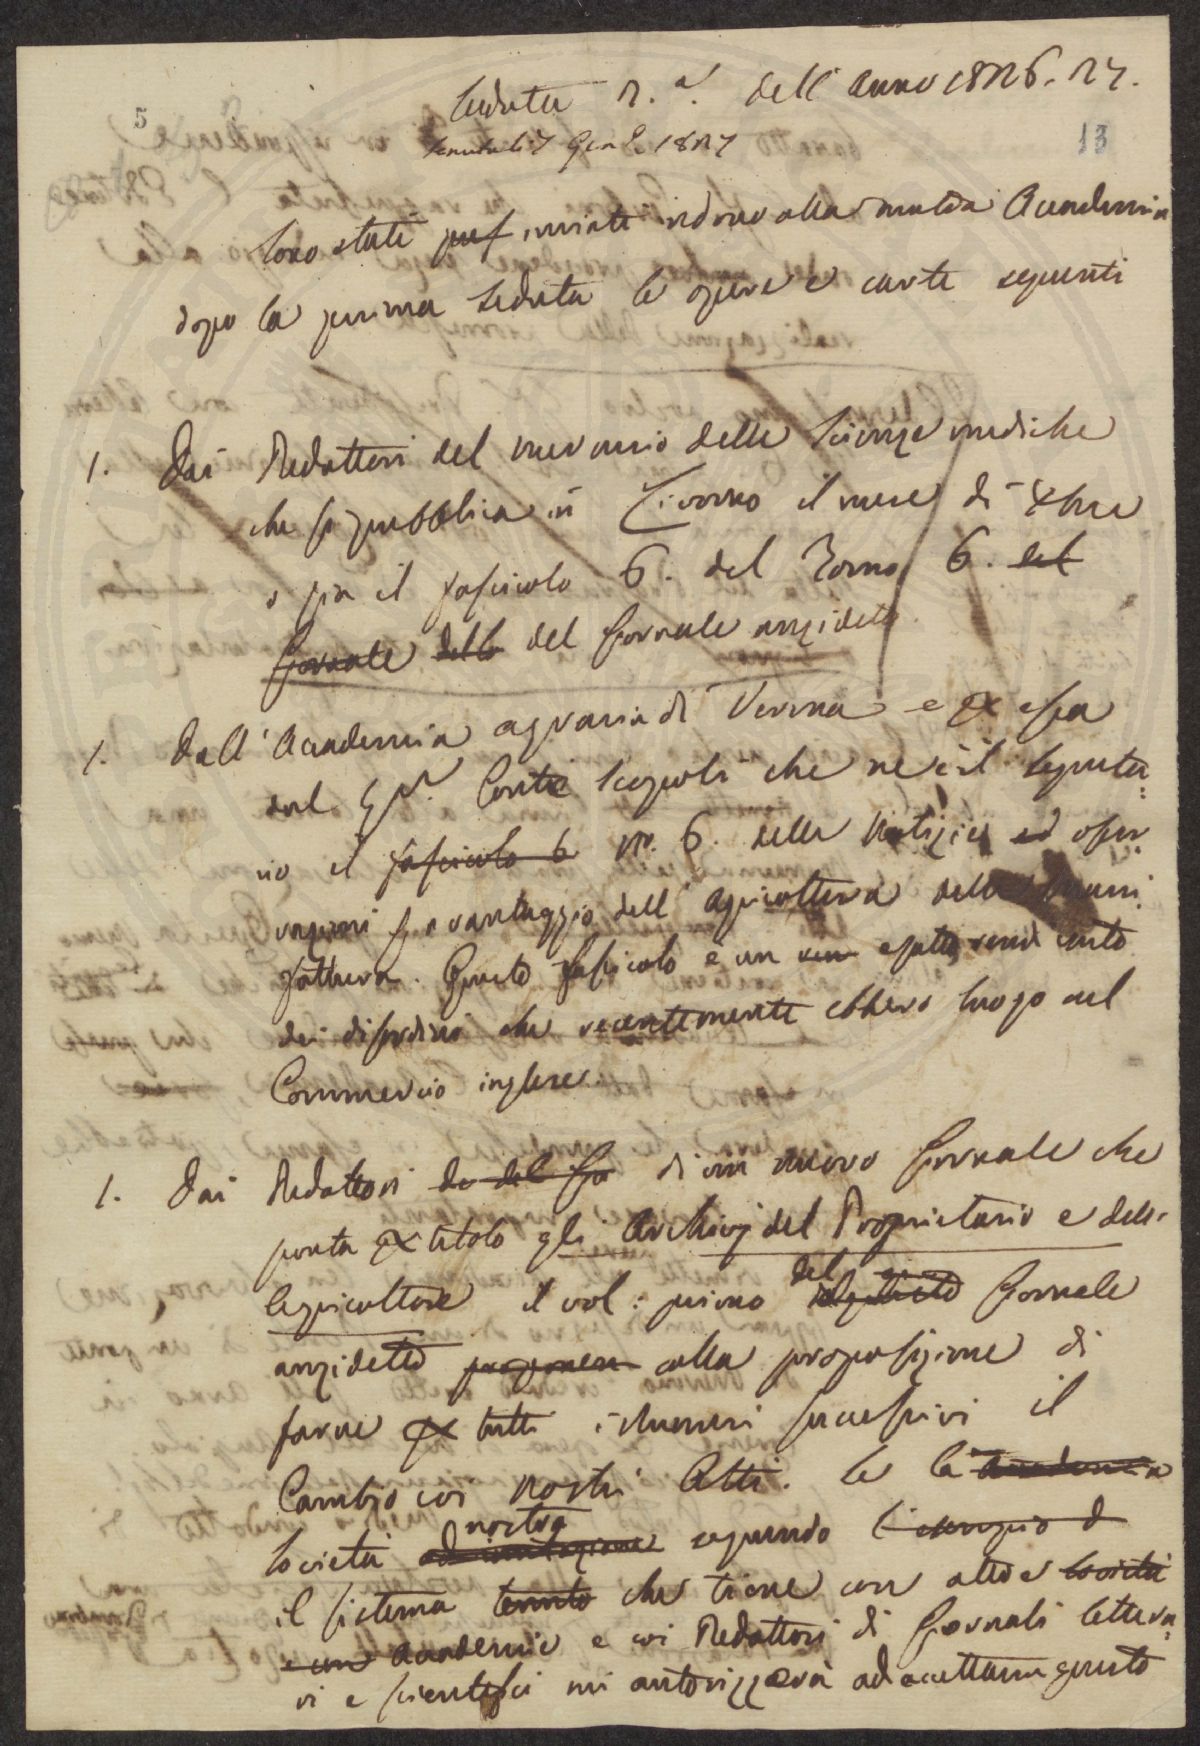 Seduta 2.a dell'Anno 1826. 27.
tenuta li 7 Gen. 1827
5
13
Sono state inviate in dono alla nostra Accademia
dopo la prima Seduta le opere e carte seguenti
1. Dai Redattori del mercurio delle Scienze mediche
che si pubblica in Livorno il mese di Xbre
o sia il fascicolo 6. del Tomo 6. del
Giornale dello del Giornale anzideto
1. Dall'Accademia agraria di Verona e per essa
dal Sigr. Conte Scopoli che ne è il Segreta=
rio il fascicolo 6 nr. 6. delle Notizie ed osser=
vazioni per vantaggio dell'Agricoltura delle Mani
fatture. Questo fascicolo è un esatto rendiconto
dei disordini che recentemente ebbero luogo nel
Commercio inglese.
1. Dai Redattori di un nuovo Giornale che
porta per titolo gli Archivj del Proprietario e dell'
Agricoltore il vol: primo del Giornale
anzidetto colla proposizione di
farne per tutti i Numeri successivi il
Cambio coi nostri Atti. Se la Accademia
Società nostra seguendo l'esempio d
il sistema tenuto che tiene con altre Società
e con Accademie e coi Redattori di Giornali lettera=
ri e scientifici mi autorizzerà ad accettarne questo